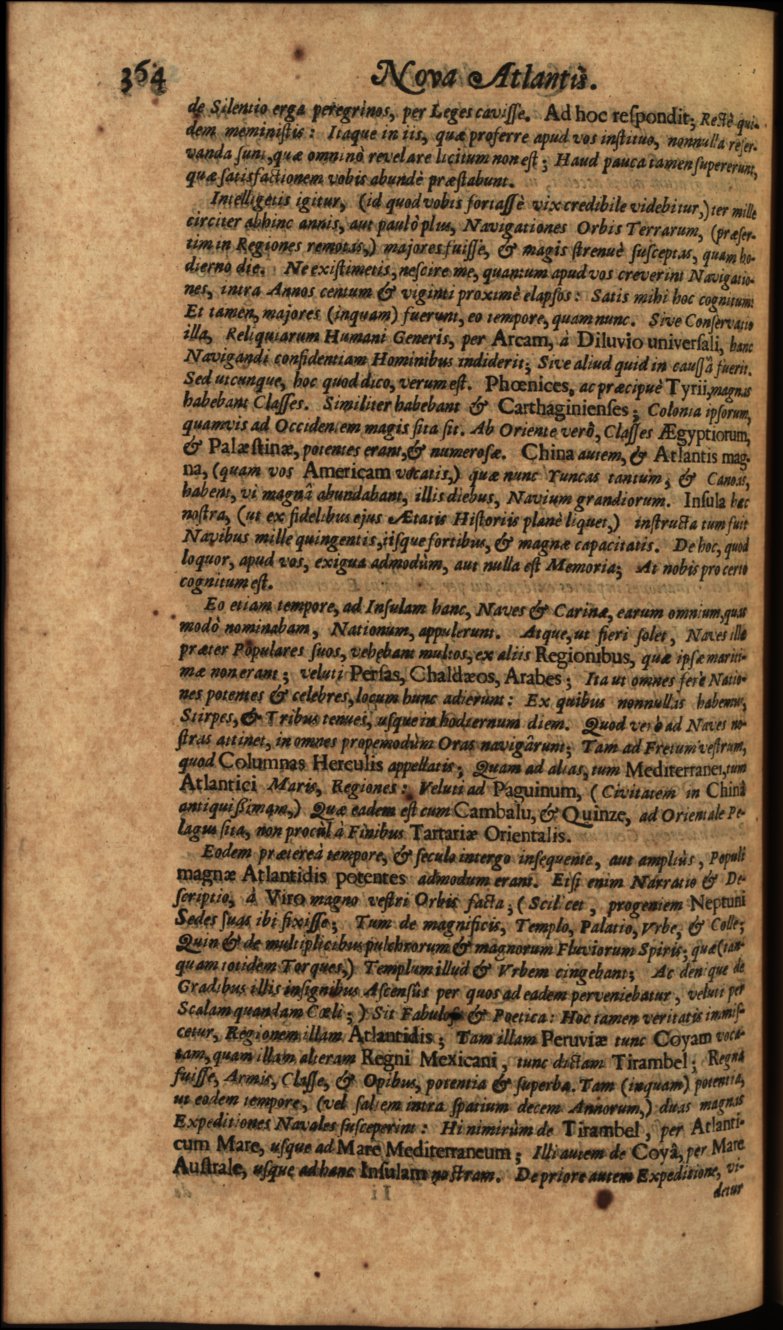 364 Nova Atlantis.
de Silentio erga peregrinos, per Leges cavisse. Ad hoc respondit; Rectè qui-
dem meministis: Itaque in iis, quæ proferre apud vos instituo, nonnulla reser-
vanda sunt, quæ omninò revelare licitum non est; Haud pauca tamen supererunt,
quæ satisfactionem vobis abundè præstabunt.
Intelligetis igitur, (id quod vobis fortassè vix credibile videbitur,) ter mille
circiter abhinc annis, aut paulò plus, Navigationes Orbis Terrarum, (præser-
tim in Regiones remotas,) majores fuisse, & magis strenuè susceptas, quam ho-
dierno die. Ne existimetis, nescire me, quantum apud vos creverint Navigatio-
nes, intra Annos centum & viginti proximè elapsos: Satis mihi hoc cognitum:
Et tamen, majores (inquam) fuerunt, eo tempore, quam nunc. Sive Conservatio
illa, Reliquiarum Humani Generis, per Arcam, à Diluvio universali, hanc
Navigandi confidentiam Hominibus indiderit; Sive aliud quid in caussâ fuerit.
Sed utcunque, hoc quod dico, verum est. Phœnices, ac præcipuè Tyrii, magnas
habebant Classes. Similiter habebant & Carthaginienses; Colonia ipsorum,
quamvis ad Occidentem magis sita sit. Ab Oriente verò, Classes Ægyptiorum,
& Palæstinæ, potentes erant, & numerosæ. China autem, & Atlantis mag-
na, (quam vos Americam vocatis,) quæ nunc Yuncas tantùm, & Canoas,
habent, vi magnâ abundabant, illis diebus, Navium grandiorum. Insula hæc
nostra, (ut ex fidelibus ejus Ætatis Historiis planè liquet,) instructa tum fuit
Navibus mille quingentis, iisque fortibus, & magnæ capacitatis. De hoc, quod
loquor, apud vos, exigua admodùm, aut nulla est Memoria; At nobis pro certo
cognitum est.
Eo etiam tempore, ad Insulam hanc, Naves & Carinæ, earum omnium, quas
modò nominabam, Nationum, appulerunt. Atque, ut fieri solet, Naves illæ
præter Populares suos, vehebant multos, ex aliis Regionibus, quæ ipsæ mariti-
mæ non erant; veluti Persas, Chaldæos, Arabes; Ita ut omnes ferè Natio-
nes potentes & celebres, locum hunc adierunt: Ex quibus nonnullas habemus,
Stirpes, & Tribus tenues, usque in hodiernum diem. Quod verò ad Naves no-
stras attinet, in omnes propemodùm Oras navigârunt; Tam ad Fretum vestrum,
quod Columnas Herculis appellatis, Quam ad alias, tum Mediterranei, tum
Atlantici Maris, Regiones: Veluti ad Paguinum, (Civitatem in China
antiquissimam,) Quæ eadem est cum Cambalu, & Quinze, ad Orientale Pe-
lagus sita, non procul à Finibus Tartariæ Orientalis.
Eodem prætereà tempore, & seculo intergo insequente, aut ampliùs, Populi
magnæ Atlantidis potentes admodum erant. Etsi enim Narratio & De-
scriptio, à Viro magno vestri Orbis facta, (Scilicet, progeniem Neptuni
Sedes suas ibi fixisse; Tum de magnificis, Templo, Palatio, Urbe, & Colle;
Quin & de multiplicibus pulchrorum & magnorum Fluviorum Spiris, quæ (tan-
quam totidem Torques,) Templum illud & Urbem cingebant; Ac denique de
Gradibus illis insignibus Ascensûs per quos ad eadem perveniebatur, veluti per
Scalam quandam Cœli;) Sit Fabulosa & Poetica: Hoc tamen veritatis immis-
cetur, Regionem illam Atlantidis; Tam illam Peruviæ tunc Coyam voca-
tam, quam illam alteram Regni Mexicani, tunc dictam Tirambel; Regna
fuisse, Armis, Classe, & Opibus, potentia & superba. Tam (inquam) potentia,
ut eodem tempore, (vel saltem intra spatium decem Annorum,) duas magnas
Expeditiones Navales susceperint: Hi nimirùm de Tirambel, per Atlanti-
cum Mare, usque ad Mare Mediterraneum; Illi autem de Coyâ, per Mare
Australe, usque ad hanc Insulam nostram. De priore autem Expeditione, vi-
detur